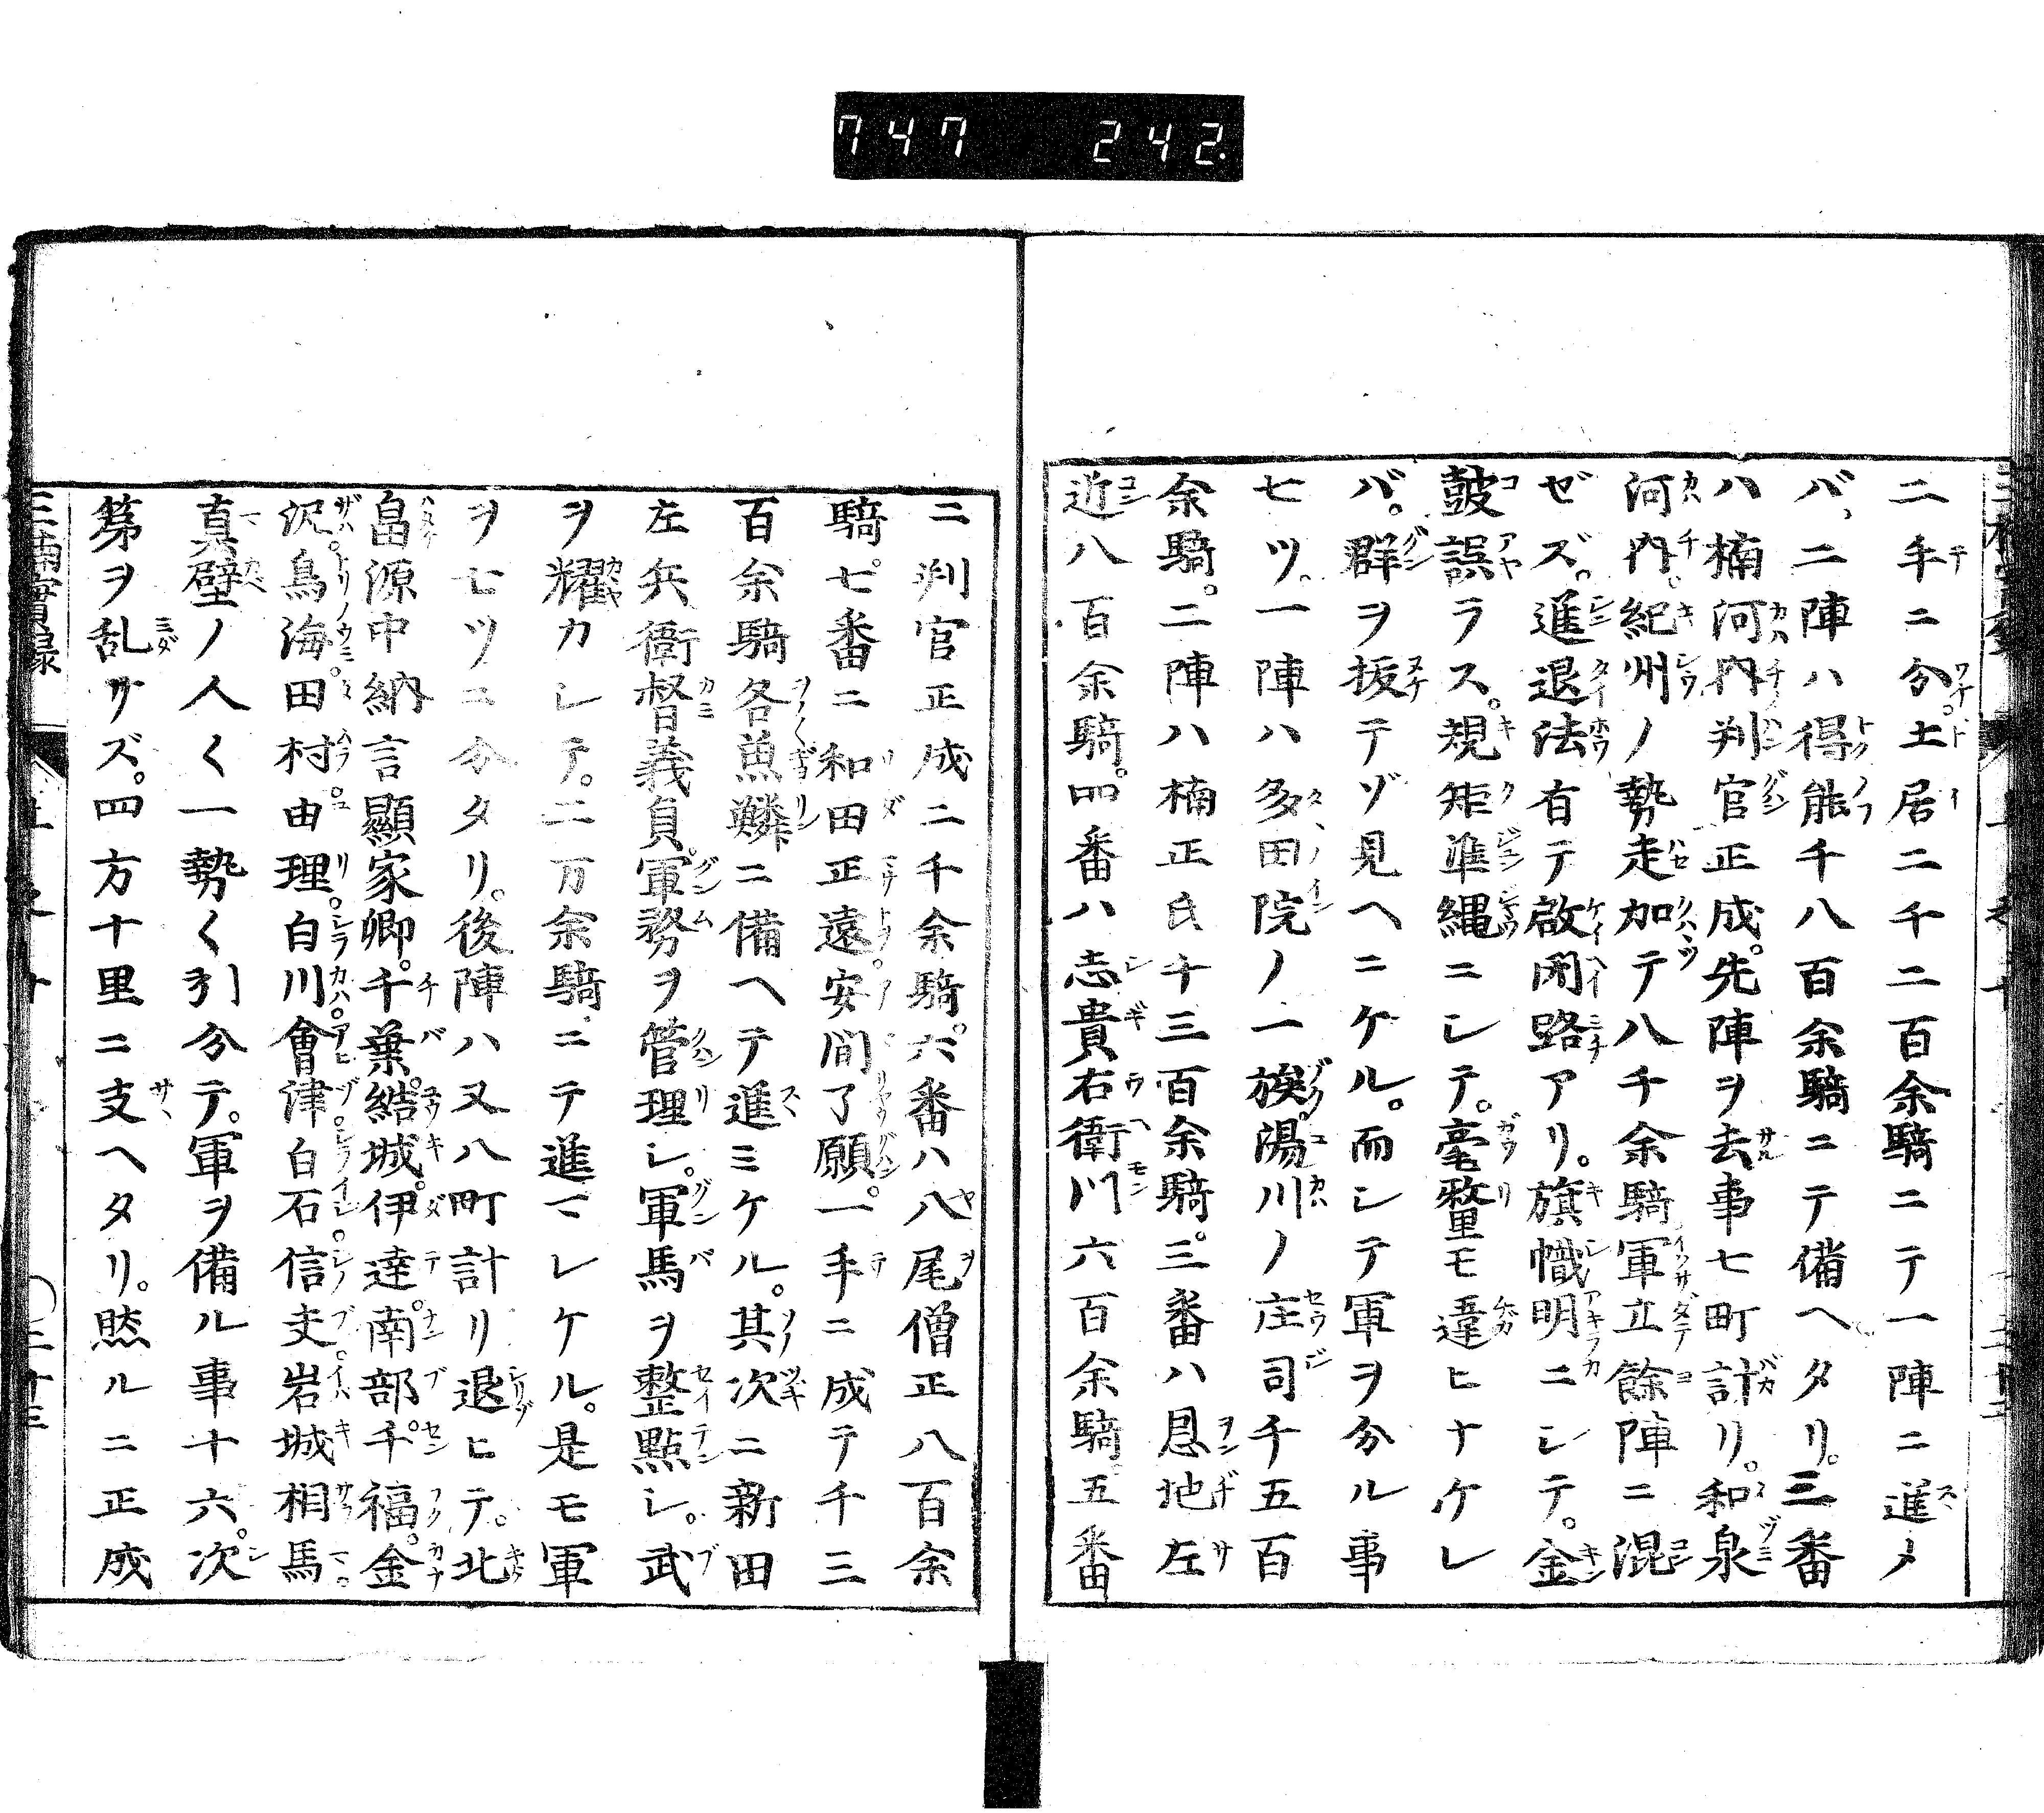 747 242.
二手ニ分。土居二千二百余騎ニテ一陣ニ進メ
バ、二陣ハ得能千八百余騎ニテ備ヘタリ。三番
ハ楠河内判官正成。先陣ヲ去事七町計リ。和泉
河内。紀州ノ勢走加テ八千余騎軍立餘陣ニ混
ゼズ。進退法有テ啟閉路アリ。旗幟明ニシテ。金
皷誤ラス。規矩準縄ニシテ。毫釐モ違ヒナケレ
バ。群ヲ抜テゾ見ヘニケル。而シテ軍ヲ分ル事
七ツ。一陣ハ多田院ノ一族。湯川ノ庄司千五百
余騎。二陣ハ楠正氏千三百余騎。三番ハ恩地左
近八百余騎。四番ハ志貴右衛門六百余騎五番
ニ判官正成二千余騎。六番ハ八尾僧正八百余
騎。七番ニ和田正遠。安間了願。一手ニ成テ千三
百余騎各魚鱗ニ備ヘテ進ミケル。其次ニ新田
左兵衛督義貞。軍務ヲ管理シ。軍馬ヲ整點シ。武
ヲ耀カシテ。二万余騎ニテ進マレケル。是モ軍
ヲ七ツニ分タリ。後陣ハ又八町計リ退ヒテ。北
畠源中納言顯家卿。千葉。結城。伊達。南部。千福。金
沢。鳥海。田村。由理。白川。會津。白石。信夫。岩城。相馬。
真壁ノ人〱一勢〱引分テ。軍ヲ備ル事十六。次
第ヲ乱サズ。四方十里ニ支ヘタリ。然ルニ正成